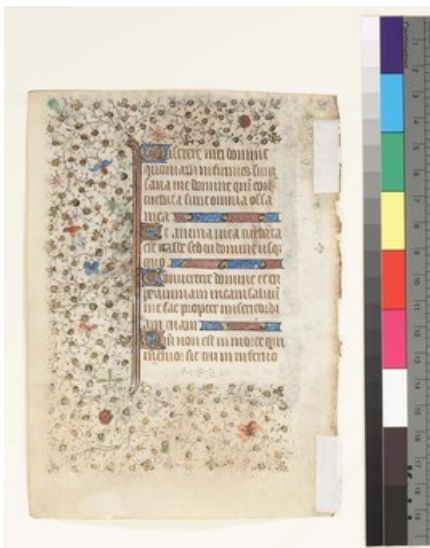 Miserere mei domine
quoniam infirmus sum
sana me domine qm̄ con
turbata sunt omnia ossa
mea
Et anima mea turbata
est valde sed domine usq
quo
Convertere domine et er
pe animam meam saluū
me fac propter misericordi
am tuam
Qm̄ non est in morte qui
memor sit tui in inferno